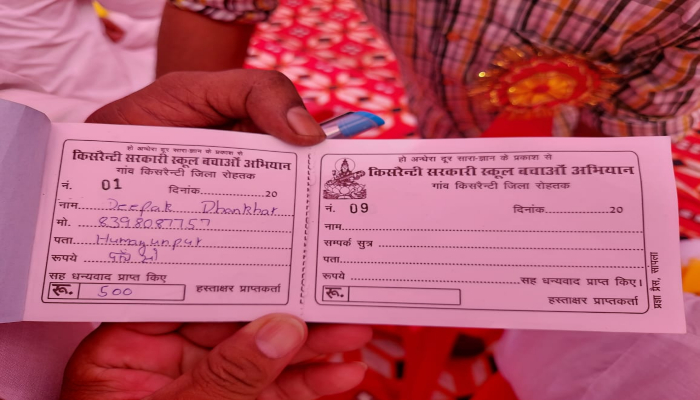 हो अन्धेरा दूर सारा-ज्ञान के प्रकाश से
किसरैन्टी सरकारी स्कूल बचाओं अभियान
गांव किसरैन्टी जिला रोहतक
नं. 01 दिनांक..............20
नाम Deepak Dhankhar
मो. 8398087757
पता Humayunpur
रूपये पाँच सौ
सह धन्यवाद प्राप्त किए
रू. 500 हस्ताक्षर प्राप्तकर्ता
हो अन्धेरा दूर सारा-ज्ञान के प्रकाश से
किसरैन्टी सरकारी स्कूल बचाओं अभियान
गांव किसरैन्टी जिला रोहतक
नं. 09 दिनांक..............20
नाम
सम्पर्क सुत्र
पता
रूपये सह धन्यवाद प्राप्त किए।
रू. हस्ताक्षर प्राप्तकर्ता
प्रज्ञा प्रैस, सांपला